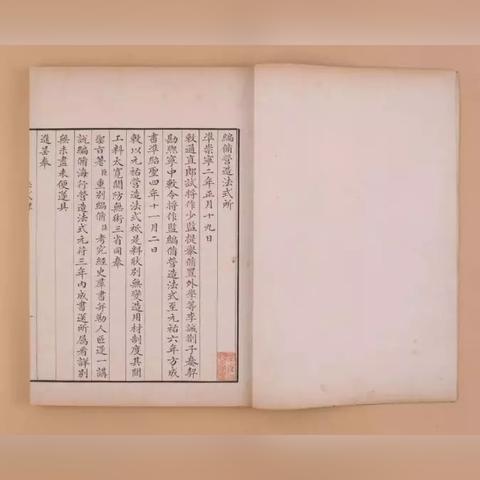 編脩營造法式所
准崇寧二年正月十九日
敕通直郎試將作少監提舉脩置外學等李誡劄子奏契
勘熙寧中敕令將作監編脩營造法式至元祐六年方成
書準紹聖四年十一月二日
敕以元祐營造法式袛是料狀別無變造用材制度其間
工料太寬關防無術三省同奉
聖旨著臣重別編脩臣考究經史羣書并勒人匠逐一講
說編脩海行營造法式元符三年內成書送所屬看詳別
無未盡未便遂具
進呈奉